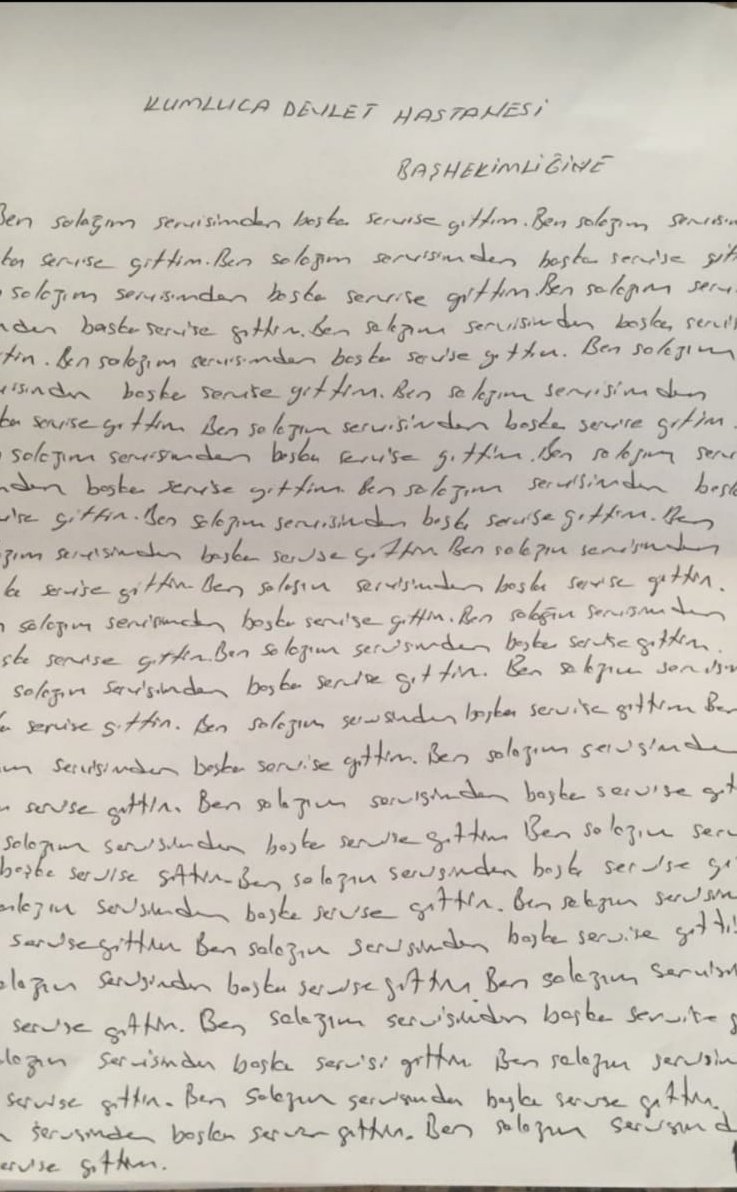 KUMLUCA DEVLET HASTANESİ
BAŞHEKİMLİĞİNE
Ben salağım servisimden başka servise gittim. Ben salağım servisim
ka servise gittim. Ben salağım servisimden başka servise git
salağım servisimden başka servise gittim. Ben salağım serv
nden başka servise gittim. Ben salağım servisimden başka servis
ttim. Ben salağım servisimden başka servise gittim. Ben salağım
visimden başka servise gittim. Ben salağım servisimden
ka servise gittim Ben salağım servisimden başka servise gittim.
salağım servisimden başka servise gittim. Ben salağım serv
nden başka servise gittim. Ben salağım servisimden başk
vise gittim. Ben salağım servisimden başka servise gittim. Ben
ağım servisimden başka servise gittim Ben salağım servisimden
ka servise gittim Ben salağım servisimden başka servise gittim.
n salağım servisimden başka servise gittim. Ben salağım servisimden
şka servise gittim. Ben salağım servisimden başka servise gittim.
salağım servisimden başka servise gittim. Ben salağım servisim
a servise gittim. Ben salağım servisimden başka servise gittim Ben
ım servisimden başka servise gittim. Ben salağım servisimden
a servise gittim. Ben salağım servisimden başka servise git
salağım servisimden başka servise gittim Ben salağım serv
başka servise gittim. Ben salağım servisimden başka servise gi
alağım servisimden başka servise gittim. Ben salağım servisim
servise gittim Ben salağım servisimden başka servise gitti
alağım servisimden başka servise gittim Ben salağım servisim
servise gittim. Ben salağım servisimden başka servise g
lağım servisimden başka servisi gittim Ben salağım servisim
servise gittim. Ben salağım servisimden başka servise gittim.
n servisimden başka gittim. Ben salağım servisimd
ervise gittim.